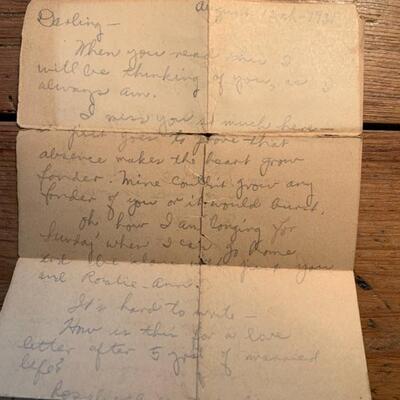 August
Darling —
When you read this I
will be thinking of you, as I
always am.
I miss you so much here
just goes to prove that
absence makes the heart grow
fonder. Mine couldn't grow any
fonder of you or it would burst.
Oh how I am longing for
Sunday when I can go home
and be close you
and Rosalie-Ann.
It's hard to write —
How is this for a love
letter after 5 yrs of married
life?